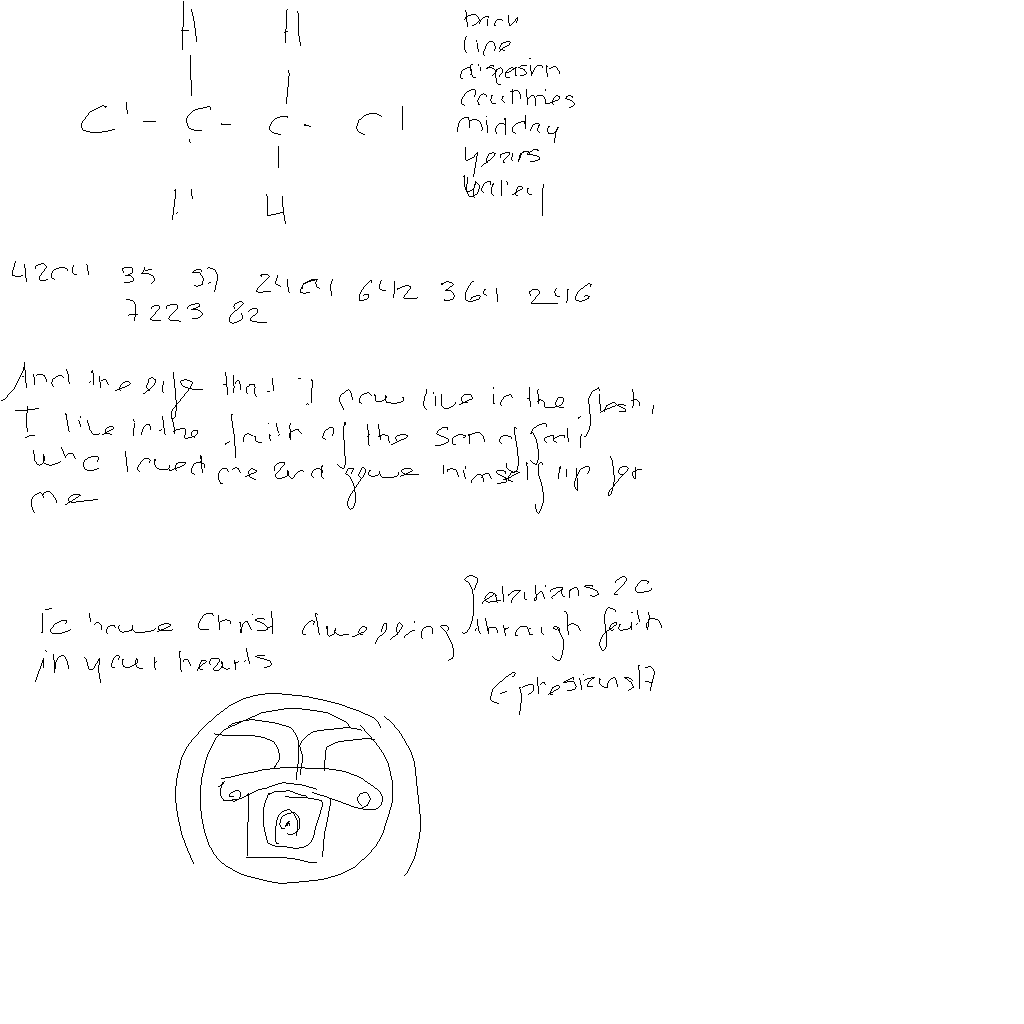 H H
Cl - C - C - Cl
H H
line
midday
years
valley
35 57 642 364 246
7223 82
And the life that I now live in the flesh,
I live in the faith of the Son of God,
who loved me and gave himself up for
me
Galatians 20
To have Christ dwelling through faith
in your hearts
Ephesians 17